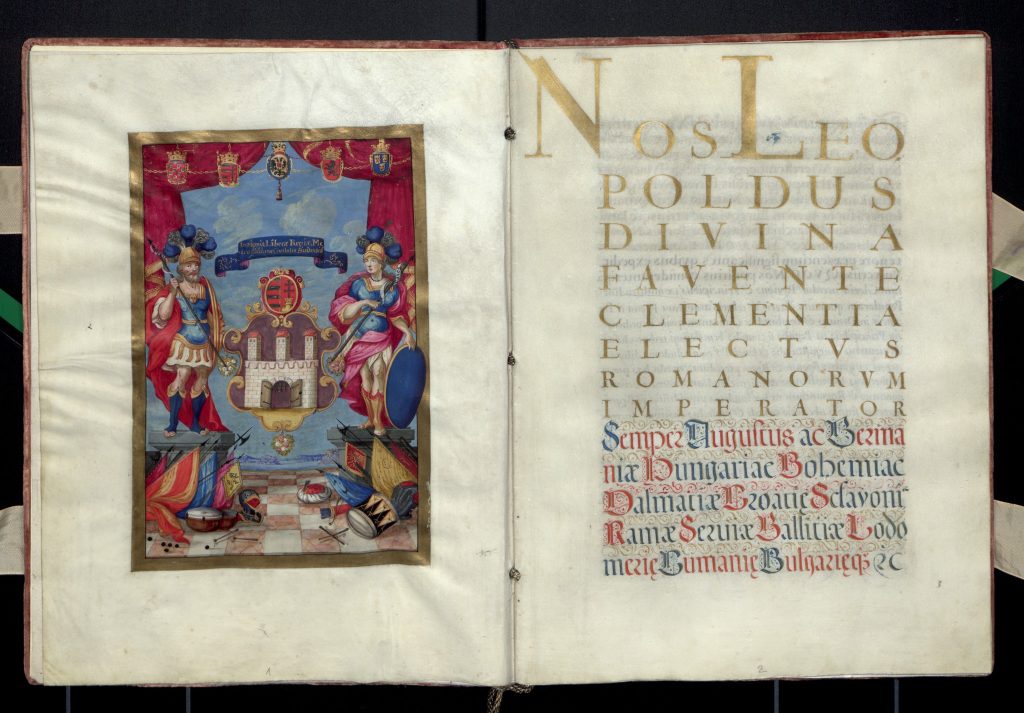 Insignia Liberæ Regiæ Me
civitatis Budensis
1
NOS LEO
POLDUS
DIVINA
FAVENTE
CLEMENTIA
ELECTVS
ROMANORVM
IMPERATOR
Semper Augustus ac Germa
niæ Hungariae Bohemiae
Dalmatiæ Croatię Sclavonię
Ramæ Serviæ Gallitiæ Lodo
merię Cumanię Bulgarięq; &c
2